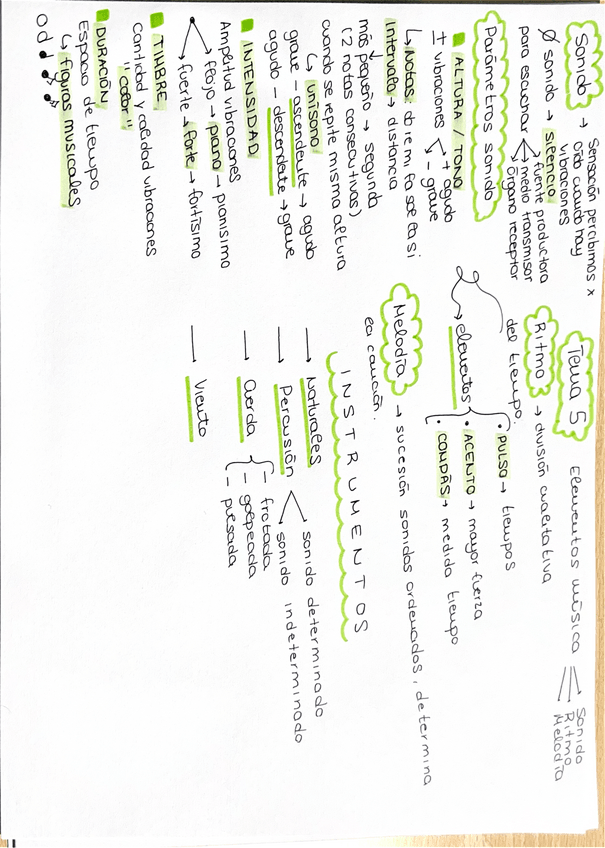 Tema 5 Elementos música
Sonido
Ritmo
Melodía
Sonido → Sensación percibimos x
oído cuando hay
vibraciones
Ø sonido → silencio
para escuchar
fuente productora
medio transmisor
órgano receptor
Parámetros sonido
ALTURA / TONO
± vibraciones
+ agudo
- grave
↳ Notas: do re mi fa sol la si
Intervalo → distancia
más pequeño → segunda
(2 notas consecutivas)
cuando se repite misma altura
↳ unísono
grave - ascendente → agudo
agudo - descendente → grave
INTENSIDAD
Amplitud vibraciones
flojo → piano → pianísimo
fuerte → forte → fortísimo
TIMBRE
Cantidad y calidad vibraciones
"color"
DURACIÓN
Espacio de tiempo
↳ figuras musicales
Ritmo → división cualitativa
del tiempo.
elementos
· PULSO → tiempos
· ACENTO → mayor fuerza
· COMPÁS → medida tiempo
Melodía → sucesión sonidos ordenados, determina
la canción.
INSTRUMENTOS
Naturales
Percusión
sonido determinado
sonido indeterminado
Cuerda
- frotada
- golpeada
- pulsada
Viento